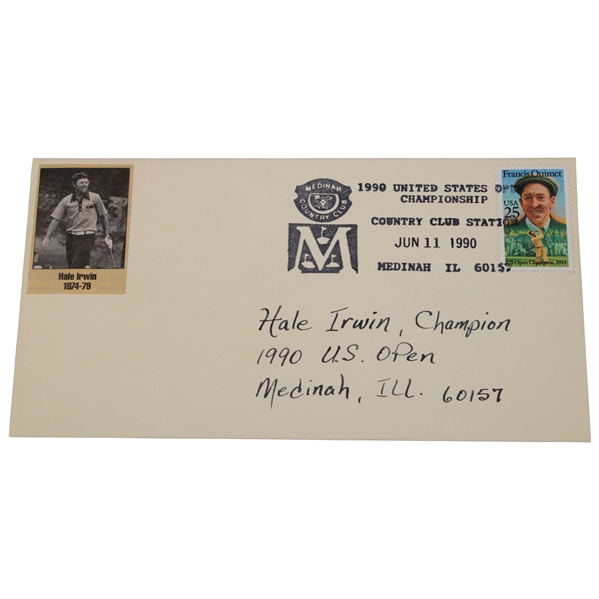 Hale Irwin
1974-79
MEDINAH
COUNTRY CLUB
M
1990 UNITED STATES
CHAMPIONSHIP
COUNTRY CLUB
JUN 11 1990
MEDINAH IL
Francis Ouimet
USA
25
U.S. Open Champion, 1913
Hale Irwin, Champion
1990 U.S. Open
Medinah, ILL. 60157